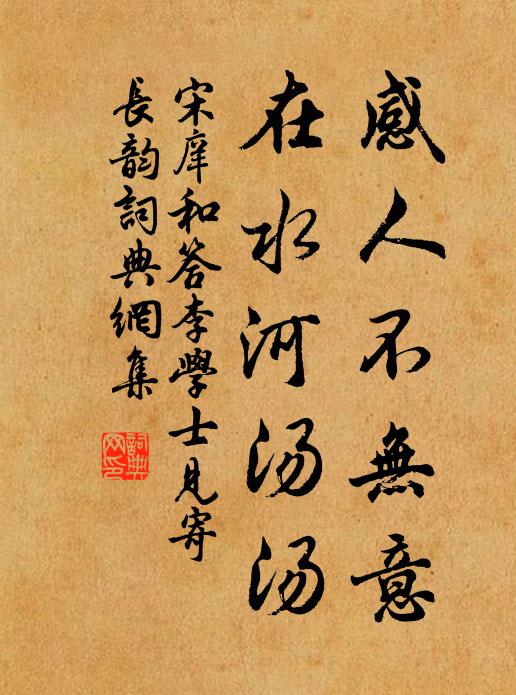 感人不無意
在水河湯湯
宋庠和答李學士見寄
長韵詞典網集
詞典網印